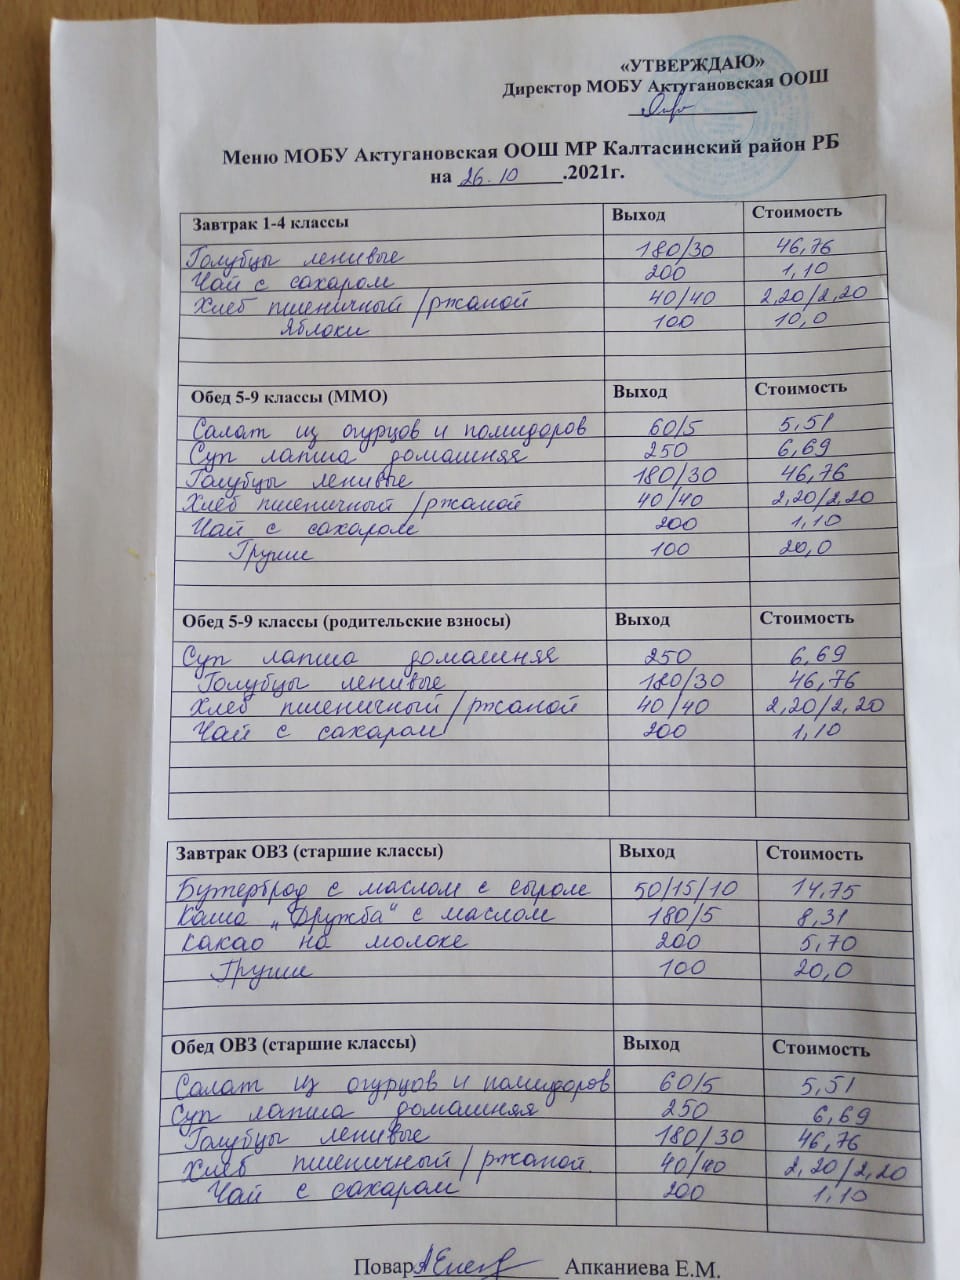 «УТВЕРЖДАЮ»
Директор МОБУ Актугановская ООШ
Меню МОБУ Актугановская ООШ МР Калтасинский район РБ
на 26.10 .2021г.
Завтрак 1-4 классы Выход Стоимость
Голубцы ленивые 180/30 46,76
Чай с сахаром 200 1,10
Хлеб пшеничный/ржаной 40/40 2,20/2,20
Яблоки 100 10,0
Обед 5-9 классы (ММО) Выход Стоимость
Салат из огурцов и помидоров 60/5 5,51
Суп лапша домашняя 250 6,69
Голубцы ленивые 180/30 46,76
Хлеб пшеничный/ржаной 40/40 2,20/2,20
Чай с сахаром 200 1,10
Груши 100 20,0
Обед 5-9 классы (родительские взносы) Выход Стоимость
Суп лапша домашняя 250 6,69
Голубцы ленивые 180/30 46,76
Хлеб пшеничный/ржаной 40/40 2,20/2,20
Чай с сахаром 200 1,10
Завтрак ОВЗ (старшие классы) Выход Стоимость
Бутерброд с маслом с сыром 50/15/10 14,75
Каша „Дружба“ с маслом 180/5 8,31
Какао на молоке 200 5,70
Груши 100 20,0
Обед ОВЗ (старшие классы) Выход Стоимость
Салат из огурцов и помидоров 60/5 5,51
Суп лапша домашняя 250 6,69
Голубцы ленивые 180/30 46,76
Хлеб пшеничный/ржаной 40/40 2,20/2,20
Чай с сахаром 200 1,10
Повар Апканиева Е.М.